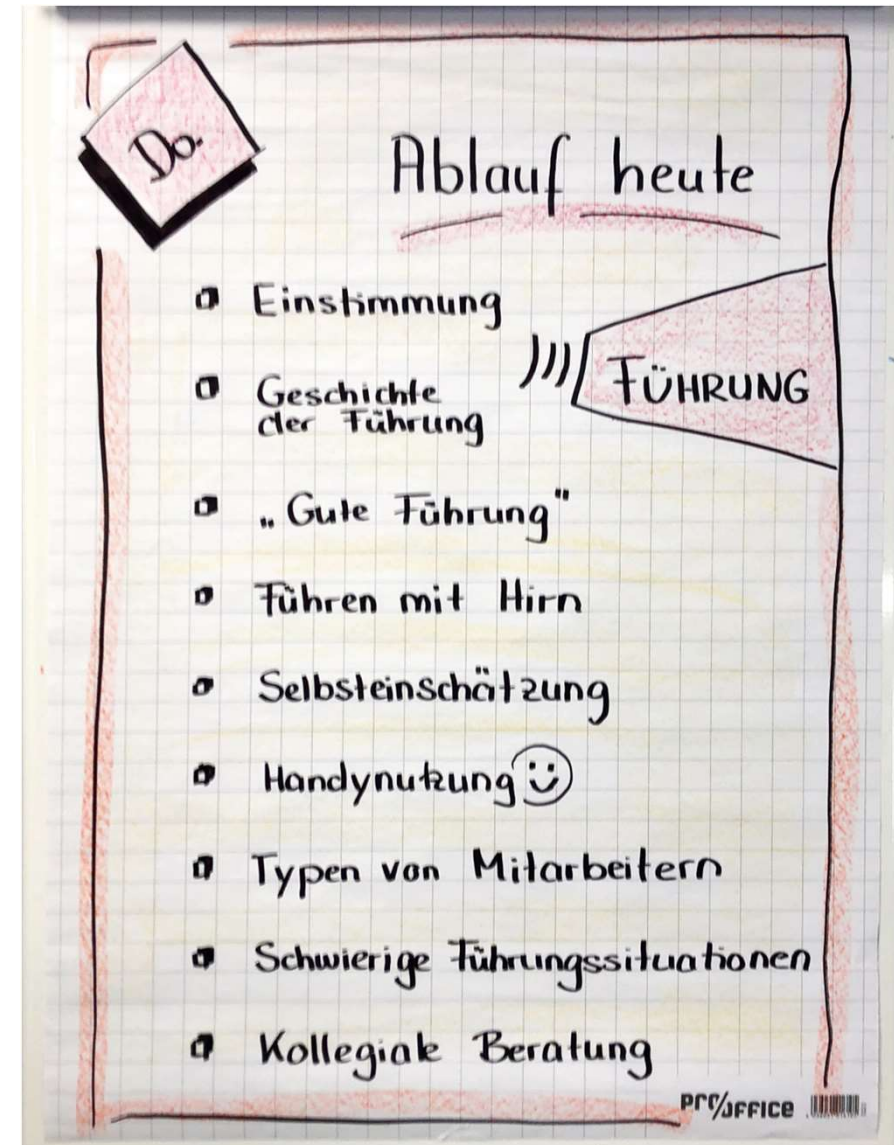 Do.
Ablauf heute
Einstimmung
FÜHRUNG
Geschichte
der Führung
„Gute Führung"
Führen mit Hirn
Selbsteinschätzung
Handynutzung
Typen von Mitarbeitern
Schwierige Führungssituationen
Kollegiale Beratung
PRO/OFFICE